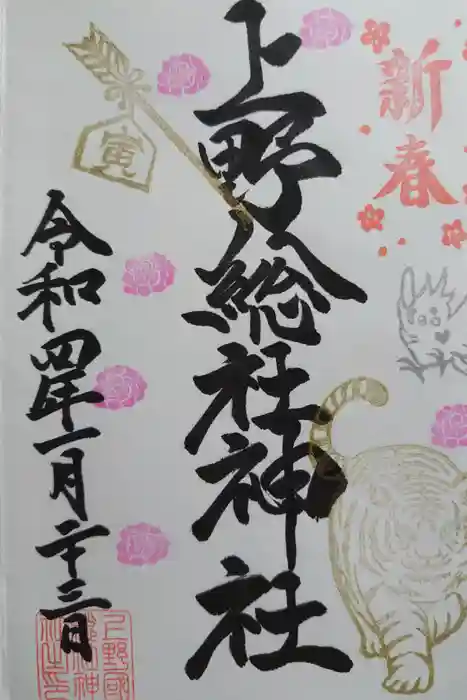 新春
上野総社神社
寅
令和四年一月二十三日